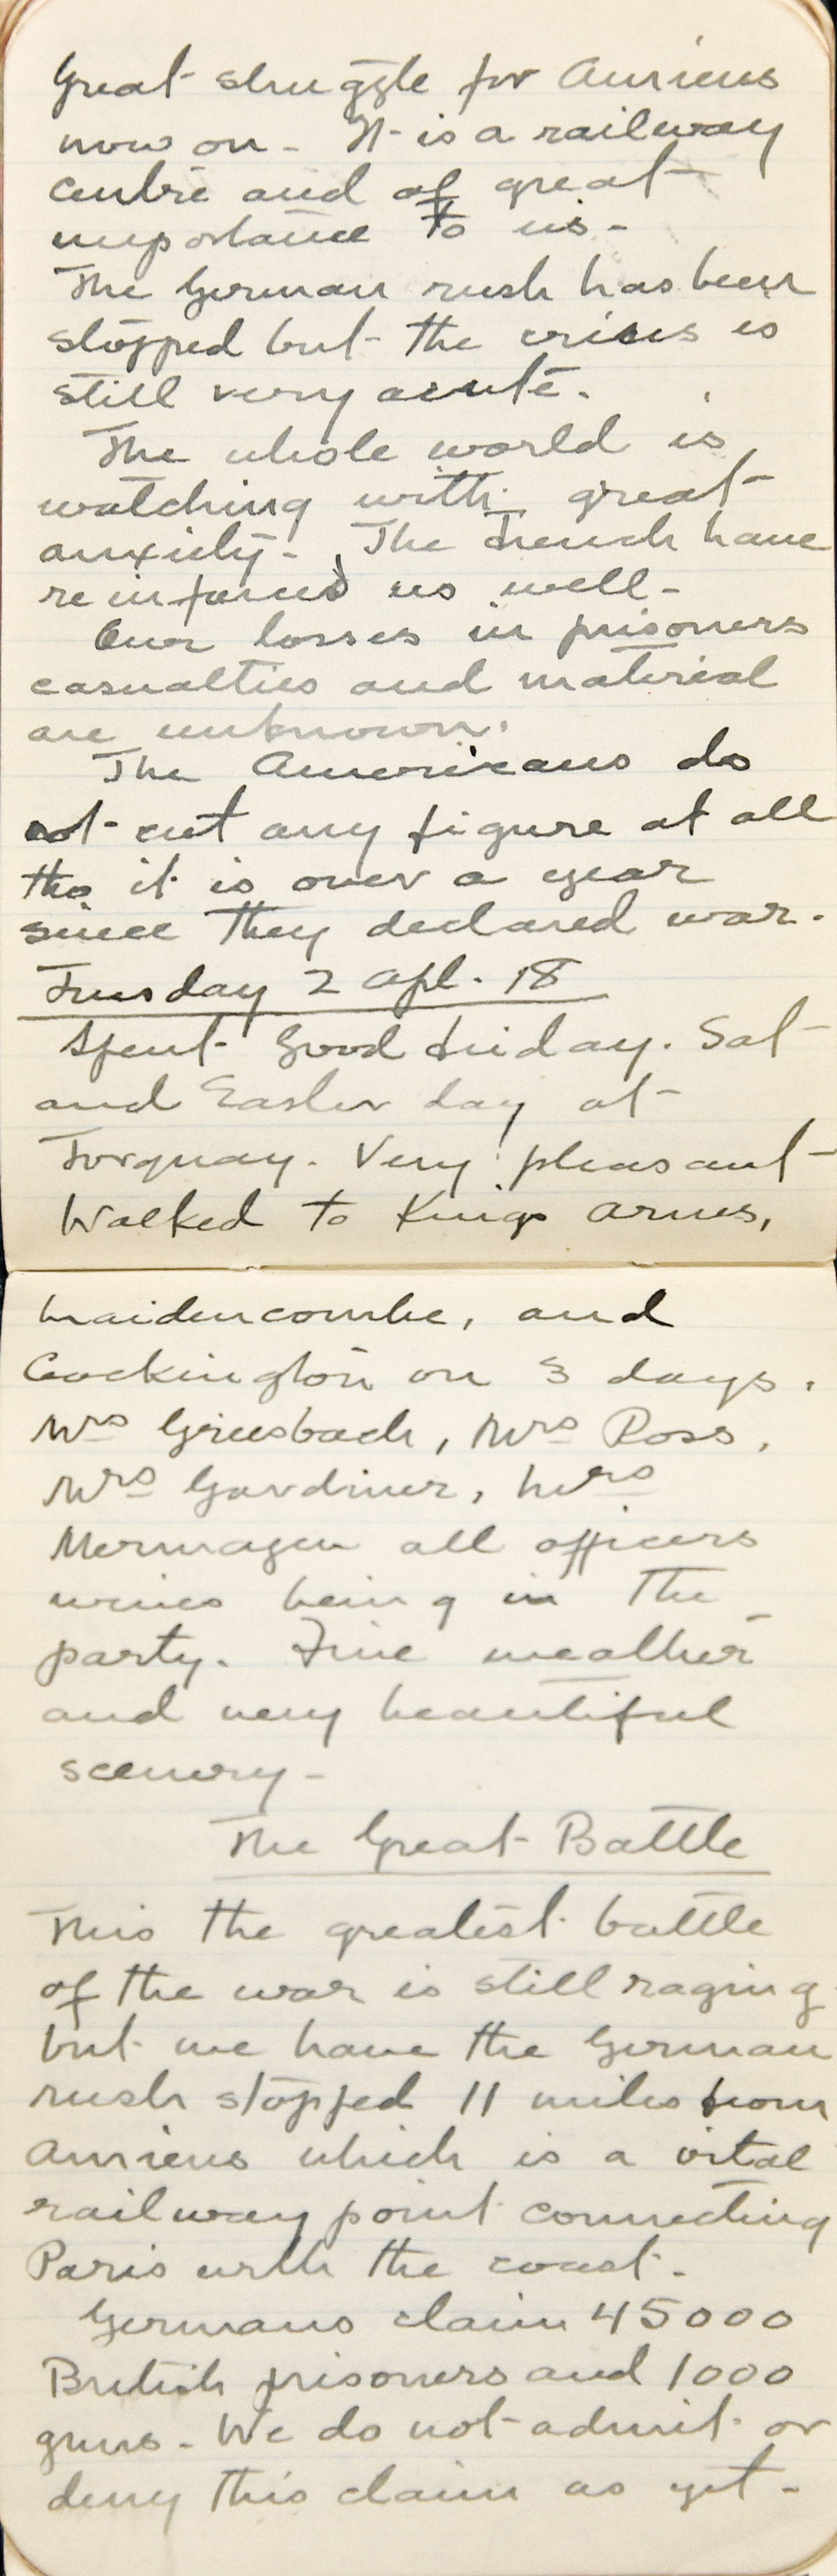 Great struggle for Amiens
now on - It is a railway
centre and of great
importance to us -
The German rush has been
stopped but the crisis is
still very acute.
The whole world is
watching with great
anxiety - The French have
reinforced us well -
Our losses in prisoners
casualties and material
are unknown.
The Americans do
not cut any figure at all
tho it is over a year
since they declared war.
Tuesday 2 Apl. 18
Spent Good Friday. Sat
and Easter day at
Torquay. Very pleasant
Walked to Kings Arms,
Maidencombe, and
Cockington on 3 days.
Mrs Griesbach, Mrs Ross,
Mrs Gardiner, Mrs
Mermagen all officers
wives being in the
party. Fine weather
and very beautiful
scenery -
The Great Battle
This the greatest battle
of the war is still raging
but we have the German
rush stopped 11 miles from
Amiens which is a vital
railway point connecting
Paris with the coast.
Germans claim 45000
British prisoners and 1000
guns - We do not admit or
deny this claim as yet -